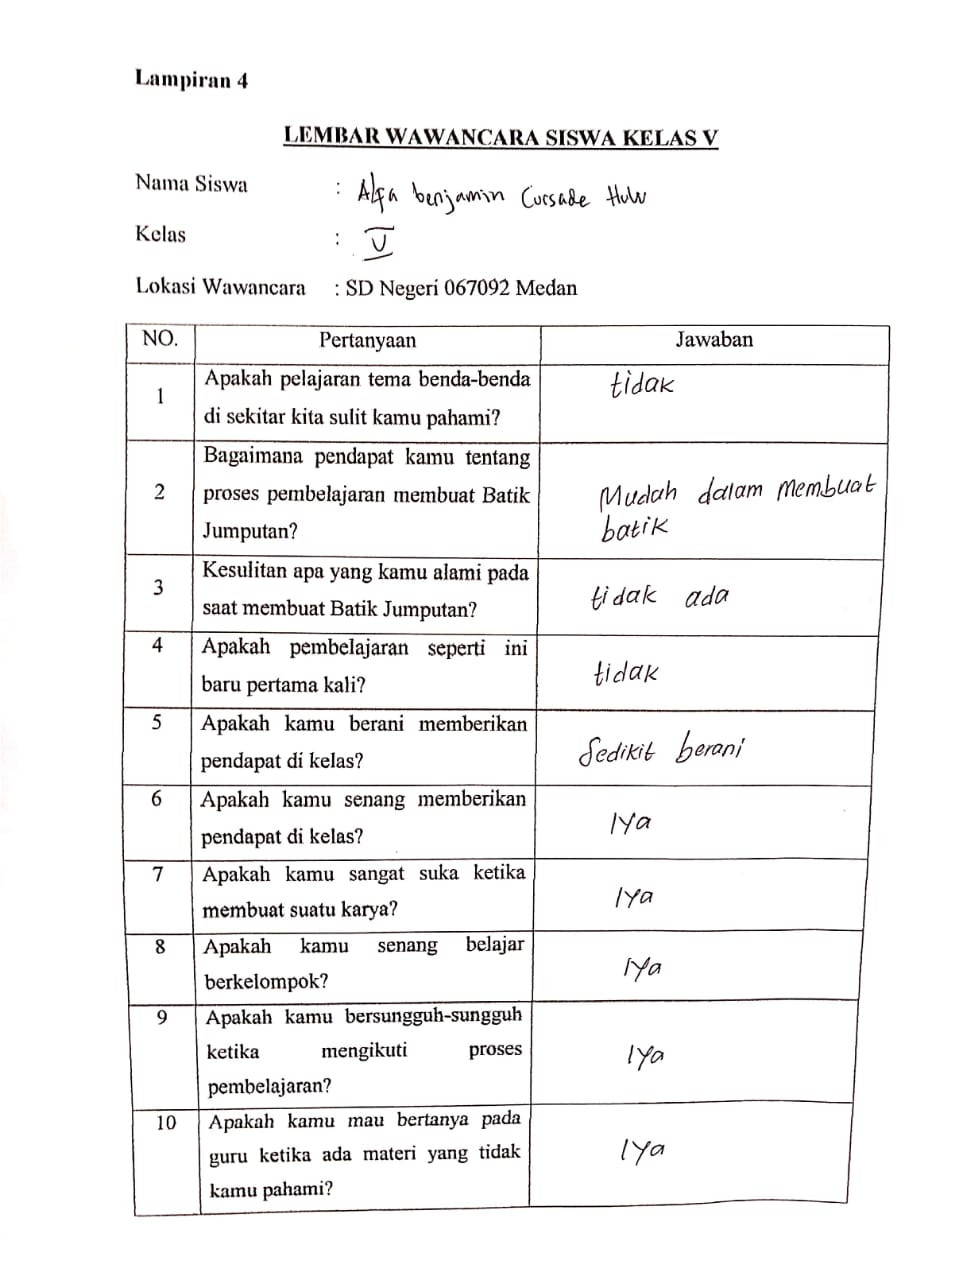 Lampiran 4
LEMBAR WAWANCARA SISWA KELAS V
Nama Siswa : Alfa benjamin Cursade Hulu
Kelas : V
Lokasi Wawancara : SD Negeri 067092 Medan
NO. Pertanyaan Jawaban
1 Apakah pelajaran tema benda-benda
di sekitar kita sulit kamu pahami?
tidak
2 Bagaimana pendapat kamu tentang
proses pembelajaran membuat Batik
Jumputan?
Mudah dalam membuat
batik
3 Kesulitan apa yang kamu alami pada
saat membuat Batik Jumputan?
tidak ada
4 Apakah pembelajaran seperti ini
baru pertama kali?
tidak
5 Apakah kamu berani memberikan
pendapat di kelas?
Sedikit berani
6 Apakah kamu senang memberikan
pendapat di kelas?
Iya
7 Apakah kamu sangat suka ketika
membuat suatu karya?
Iya
8 Apakah kamu senang belajar
berkelompok?
Iya
9 Apakah kamu bersungguh-sungguh
ketika mengikuti proses
pembelajaran?
Iya
10 Apakah kamu mau bertanya pada
guru ketika ada materi yang tidak
kamu pahami?
Iya